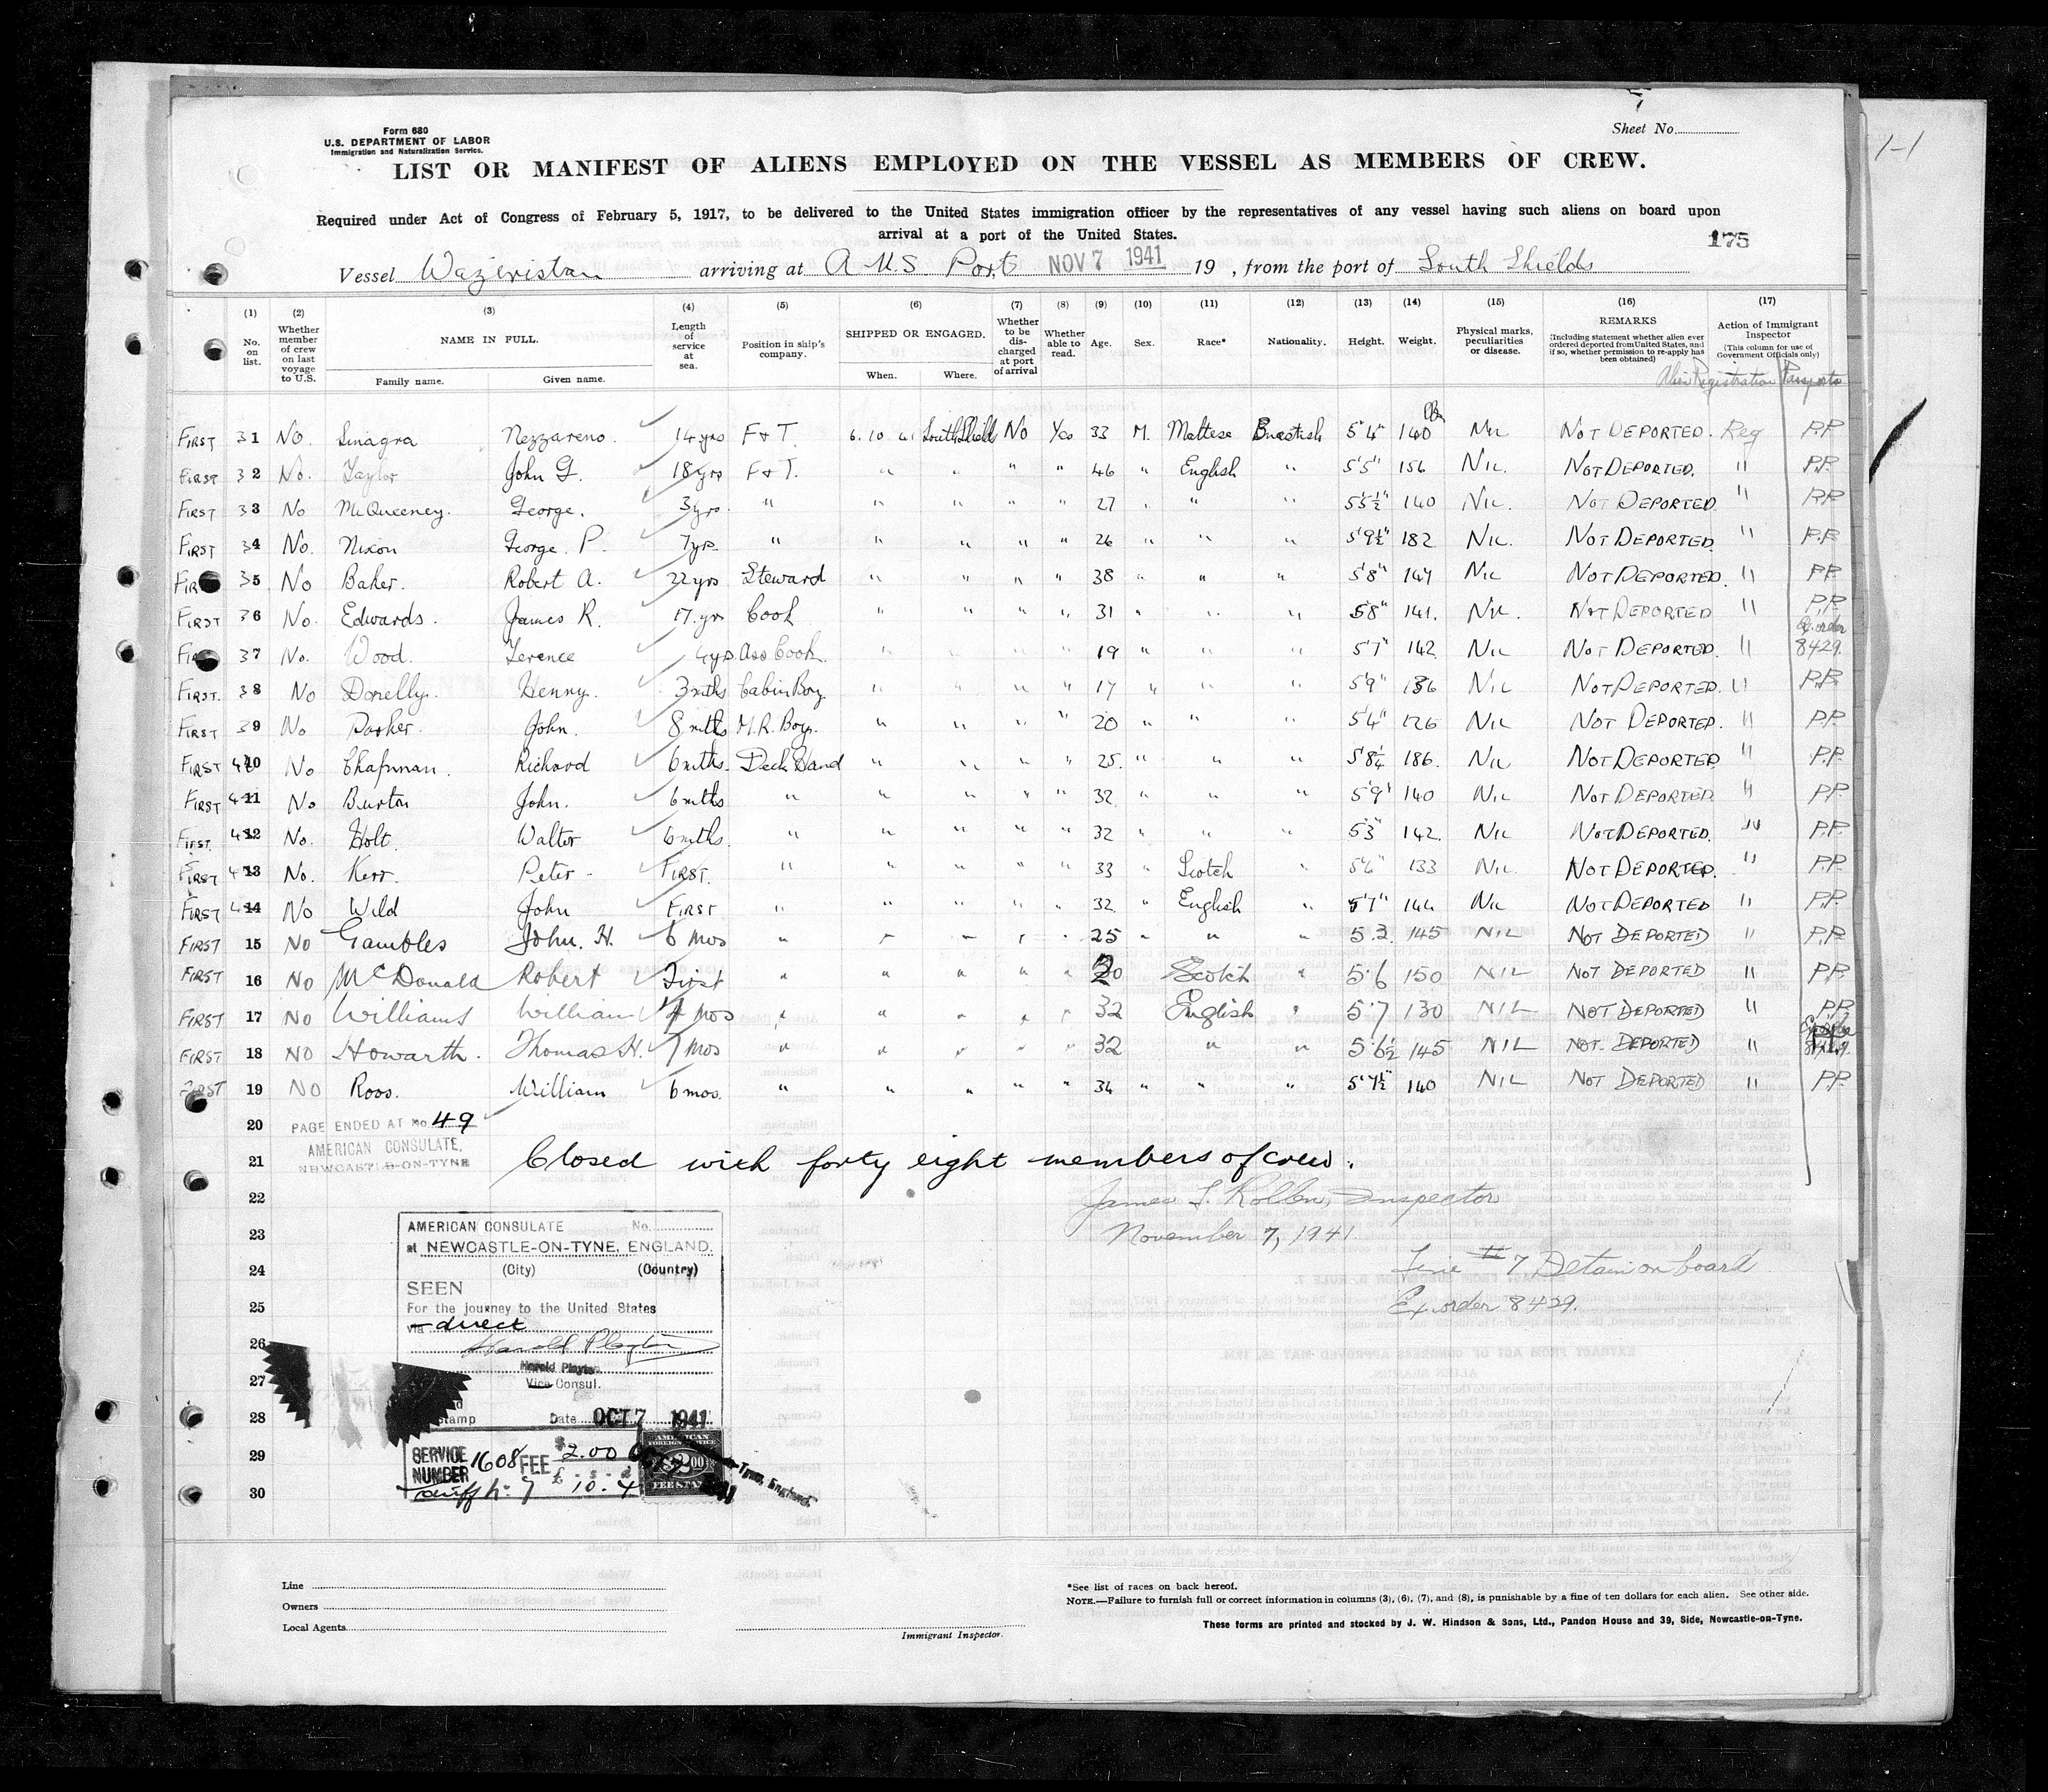 Form 680
U.S. DEPARTMENT OF LABOR
Immigration and Naturalization Service.
Sheet No.
1-1
LIST OR MANIFEST OF ALIENS EMPLOYED ON THE VESSEL AS MEMBERS OF CREW.
Required under Act of Congress of February 5, 1917, to be delivered to the United States immigration officer by the representatives of any vessel having such aliens on board upon
arrival at a port of the United States.
175
Vessel Waziristan arriving at A U.S. Port NOV 7 1941 19 , from the port of South Shields
(1) (2) (3) (4) (5) (6) (7) (8) (9) (10) (11) (12) (13) (14) (15) (16) (17)
No. on list. Whether member of crew on last voyage to U.S. NAME IN FULL. Family name. Given name. Length of service at sea. Position in ship's company. SHIPPED OR ENGAGED. When. Where. Whether to be discharged at port of arrival Whether able to read. Age. Sex. Race* Nationality. Height. Weight. Physical marks, peculiarities or disease. REMARKS (Including statement whether alien ever ordered deported from United States, and if so, whether permission to re-apply has been obtained) Action of Immigrant Inspector (This column for use of Government Officials only)
Alien Registration Passports
FIRST 31 No. Sinagra Nezzareno. 14 yrs F & T. 6. 10 41 South Shields No Yes 33 M. Maltese British 5'4" 140 lbs Nil NOT DEPORTED. Reg P.P.
FIRST 32 No. Taylor John G. 18 yrs F & T. " " " " 46 " English " 5'5" 156 NIL. NOT DEPORTED. " P.P.
FIRST 33 No McQueeney. George. 3 yrs. " " " " " 27 " " " 5'5½" 140 NIL. NOT DEPORTED. " P.P.
FIRST 34 No. Nixon George. P. 7 yrs. " " " " " 26 " " " 5'9½" 182 NIL. NOT DEPORTED. " P.P.
FIRST 35 No Baker. Robert A. 22 yrs Steward " " " " 38 " " " 5'8" 147 NIL NOT DEPORTED. " P.P.
FIRST 36 No. Edwards. James R. 17. yrs Cook " " " " 31 " " " 5'8" 141. NIL. NOT DEPORTED " P.P.
FIRST 37 No. Wood. Terence 4 yrs. Ass Cook. " " " " 19 " " " 5'7" 142 NIL NOT DEPORTED. " Ex. order 8429
FIRST. 38 No Donelly. Henry. 3 mths Cabin Boy " " " " 17 " " " 5'9" 136 NIL NOT DEPORTED. " P.P.
FIRST 39 No Parker. John. 8 mths M.R. Boy. " " " " 20 " " " 5'4" 126 NIL NOT DEPORTED. " P.P.
FIRST 40 No Chapman. Richard 6 mths. Deck Hand " " " " 25. " " " 5'8¼ 186. NIL NOT DEPORTED. " P.P.
FIRST 41 No Burton John. 6 mths " " " " " 32. " " " 5'9" 140 NIL NOT DEPORTED. " P.P.
FIRST. 42 No. Holt. Walter 6 mths. " " " " " 32 " " " 5'3" 142. NIL NOT DEPORTED. " P.P.
FIRST 43 No. Kerr. Peter - FIRST. " " " " " 33 " Scotch " 5'6" 133 NIL. NOT DEPORTED. " P.P.
FIRST 44 No Wild John FIRST " " " " " 32. " English " 5'7" 144 NIL NOT DEPORTED " P.P.
FIRST 15 NO Gambles John. H. 6 mos " " " " " 25 " " " 5.3. 145 NIL NOT DEPORTED " P.P.
FIRST 16 NO McDonald Robert First " " " " " 30 Scotch " 5.6 150 NIL NOT DEPORTED " P.P.
FIRST 17 NO Williams William 4 mos " " " " " 32 English " 5.7 130 NIL NOT DEPORTED " P.P.
FIRST 18 NO Howarth. Thomas H. 7 mos " " " " " 32 " " 5.6½ 145 NIL NOT DEPORTED "
FIRST 19 NO Ross. William 6 mos. " " " " " 34 " " " 5'7½" 140 NIL NOT DEPORTED " P.P.
20 PAGE ENDED AT No 49
AMERICAN CONSULATE,
NEWCASTLE-ON-TYNE
21 Closed with forty eight members of crew.
22 Inspector
23 November 7, 1941.
24 Line #7 Detain on board
25 Ex. order 8429.
26
27
28
29
30
AMERICAN CONSULATE No.
at NEWCASTLE-ON-TYNE, ENGLAND.
(City) (Country)
SEEN
For the journey to the United States
via direct
Harold Playter
Harold Playter
Vice Consul.
Stamp Date OCT 7 1941
SERVICE NUMBER 1608 FEE $2.00
Tariff No 7 £ - s - d 10. 4
AMERICAN
FOREIGN SERVICE
$2.00
FEE STAMP
Tyne, England.
Line
Owners
Local Agents
Immigrant Inspector.
*See list of races on back hereof.
NOTE.—Failure to furnish full or correct information in columns (3), (6), (7), and (8), is punishable by a fine of ten dollars for each alien. See other side.
These forms are printed and stocked by J. W. Hindson & Sons, Ltd., Pandon House and 39, Side, Newcastle-on-Tyne.